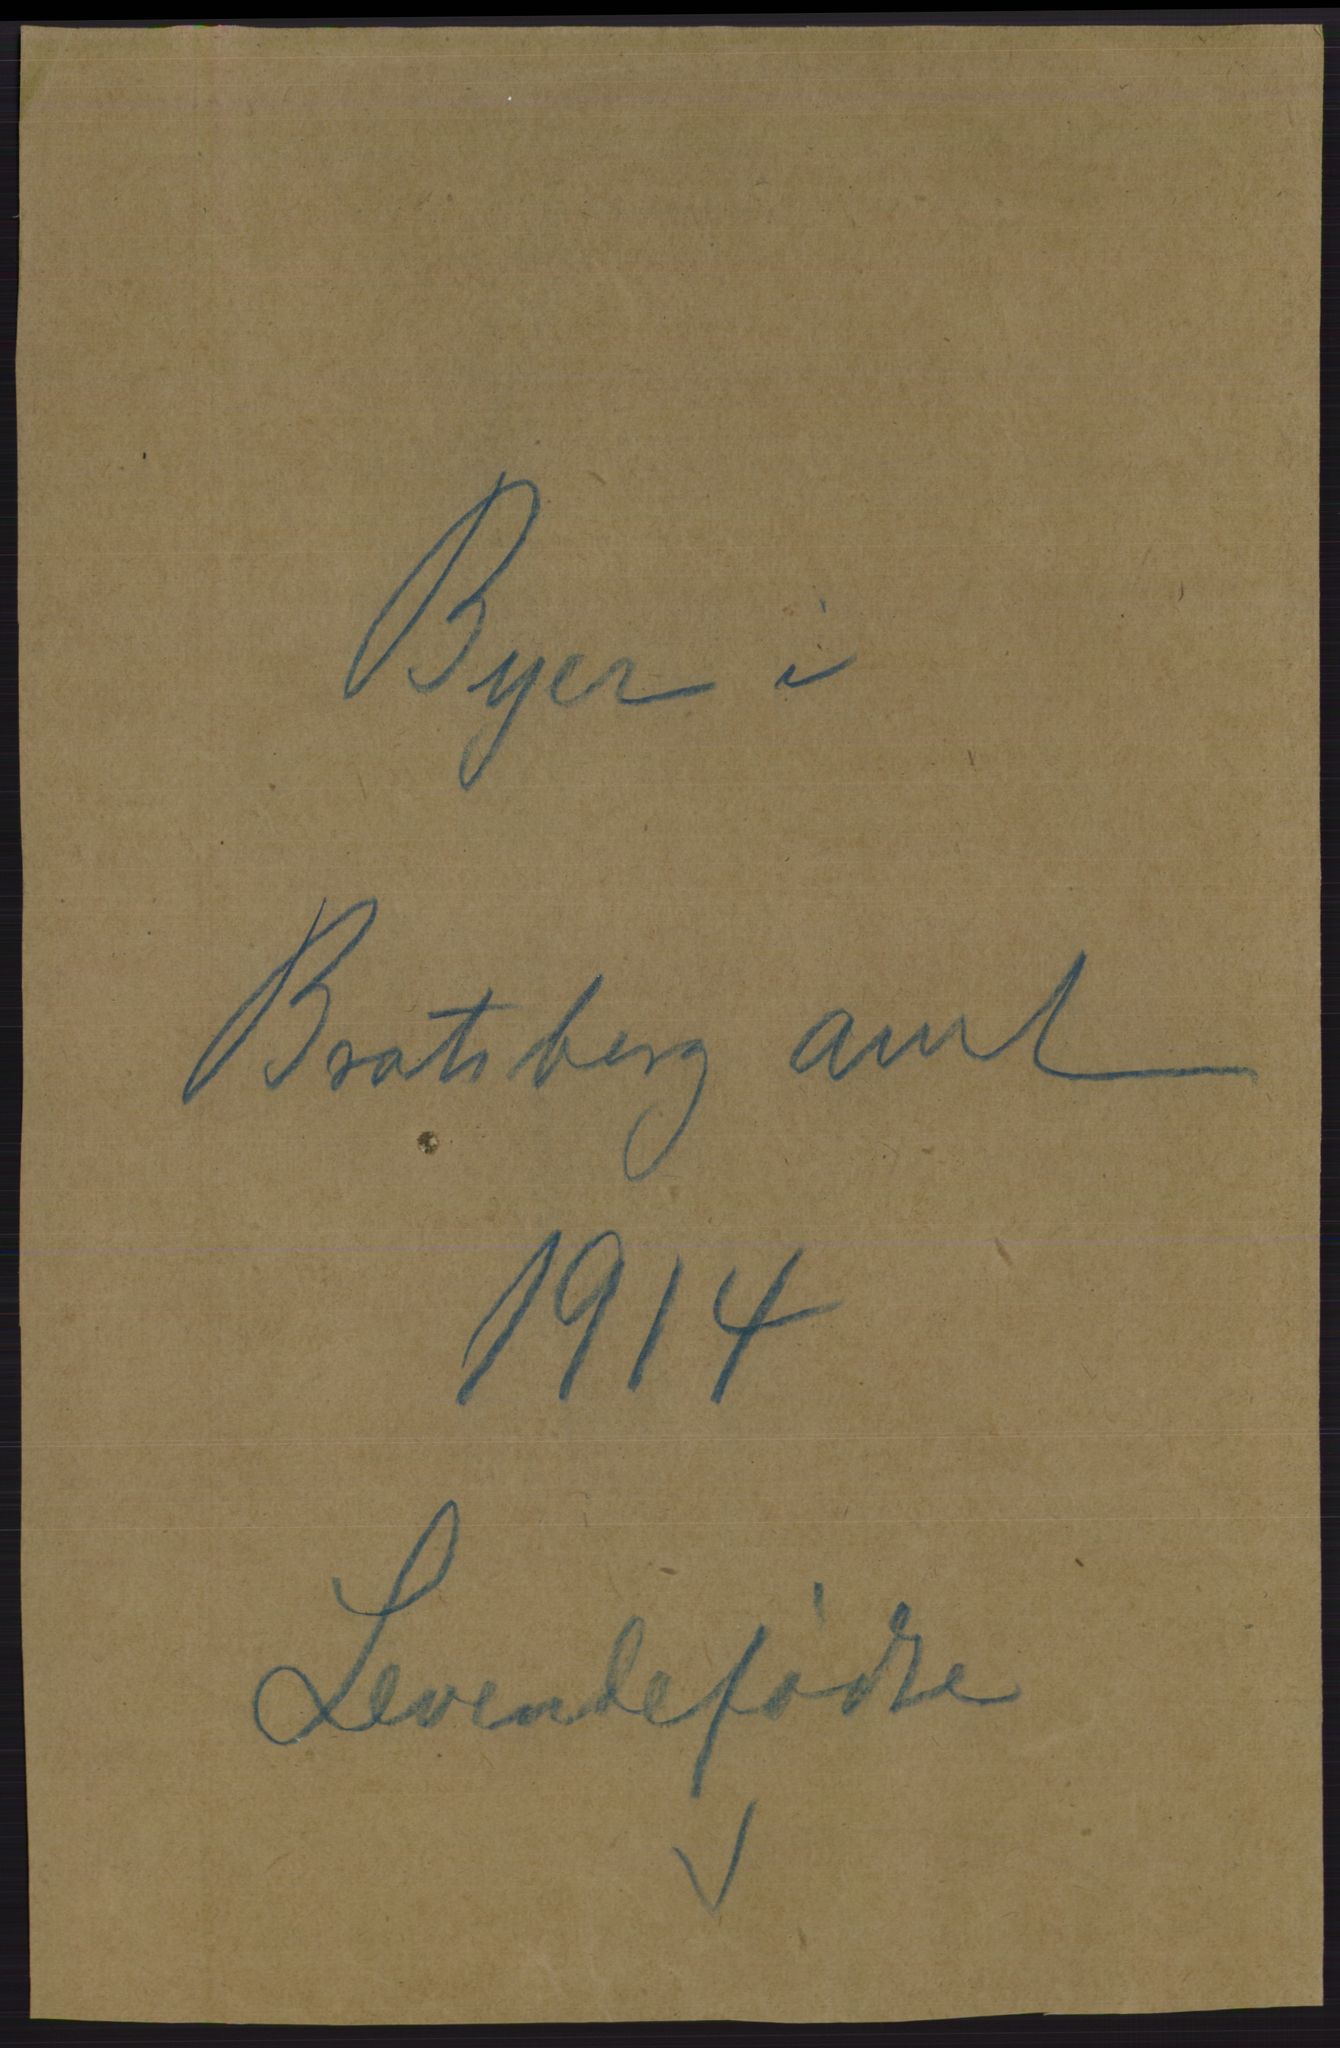 Byer i
Bratsberg amt
1914
Levendefødte